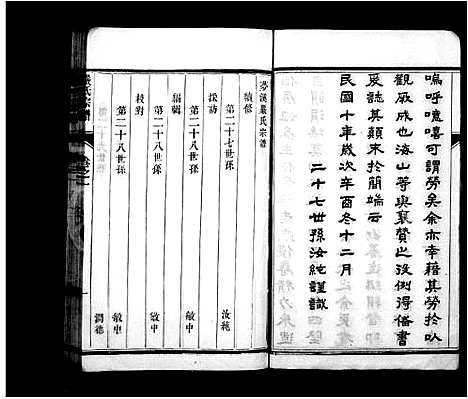 嗚呼噫嘻可謂勞矣余亦幸藉其勞於以
觀厥成也海山等與襄贊之役例得備書
爰誌其顛末於簡端云
民國十年歲次辛酉冬十二月
二十七世孫汝純謹識
浡溪嚴氏宗譜
續修
第二十七世孫 汝純
採訪
第二十八世孫 敏中
編輯
第二十八世孫 敏中
校對
第二十八世孫 敏中
潤德
嚴氏宗譜
卷之一